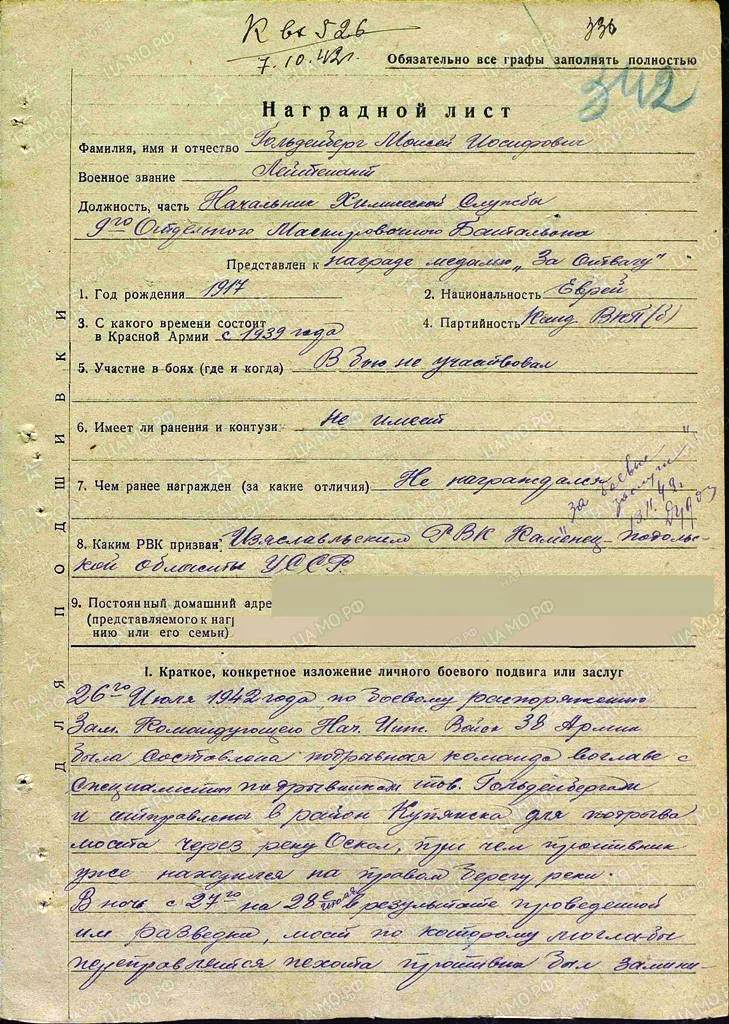 К вх 526
7.10.42г.
336
Обязательно все графы заполнять полностью
342
Наградной лист
Фамилия, имя и отчество Гольденберг Моисей Иосифович
Военное звание Лейтенант
Должность, часть Начальник Химической Службы
9го Отдельного Маскировочного Батальона
Представлен к награде медалью „За Отвагу"
1. Год рождения 1917
2. Национальность Еврей
3. С какого времени состоит
в Красной Армии с 1939 года
4. Партийность Канд. ВКП(б)
5. Участие в боях (где и когда) В бою не участвовал
6. Имеет ли ранения и контузи Не имеет
7. Чем ранее награжден (за какие отличия) Не награждался
„за боевые
заслуги"
8. Каким РВК призван Изяславльским РВК Каменец-Подольс-
кой области УССР
9. Постоянный домашний адре
(представляемого к наг
нию или его семьи)
ДЛЯ ПОДШИВКИ
I. Краткое, конкретное изложение личного боевого подвига или заслуг
26го Июля 1942 года по боевому распоряжению
Зам. Командующего Нач. Инж. Войск 38 Армии
была составлена подрывная команда во главе с
специалистом подрывником тов. Гольденбергом
и отправлена в район Купянска для подрыва
моста через реку Оскол, при чем противник
уже находился на правом берегу реки.
В ночь с 27го на 28е июля в результате проведенной
им разведки, мост по которому могла бы
переправится пехота противна был замини-